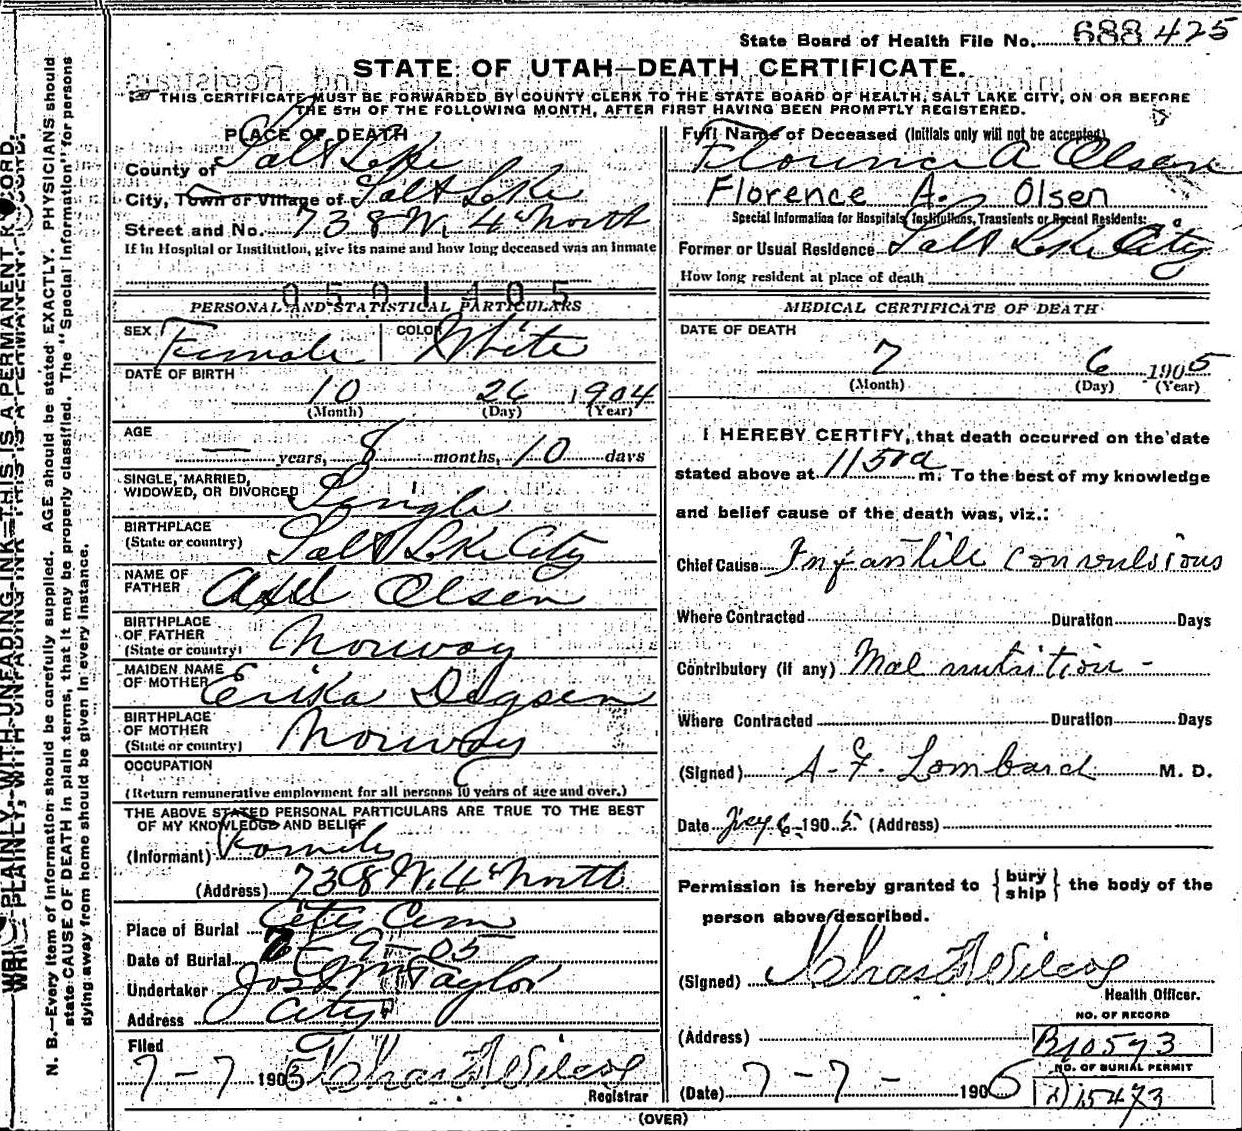 State Board of Health File No. 688 425
STATE OF UTAH—DEATH CERTIFICATE.
THIS CERTIFICATE MUST BE FORWARDED BY COUNTY CLERK TO THE STATE BOARD OF HEALTH, SALT LAKE CITY, ON OR BEFORE
THE 5TH OF THE FOLLOWING MONTH, AFTER FIRST HAVING BEEN PROMPTLY REGISTERED.
PLACE OF DEATH
County of Salt Lake
City, Town or Village of Salt Lake
Street and No. 738 W. 4th North
If in Hospital or Institution, give its name and how long deceased was an inmate
0501405
PERSONAL AND STATISTICAL PARTICULARS
SEX Female COLOR White
DATE OF BIRTH
10 26 1904
(Month) (Day) (Year)
AGE
— years, 8 months, 10 days
SINGLE, MARRIED,
WIDOWED, OR DIVORCED Single
BIRTHPLACE
(State or country) Salt Lake City
NAME OF
FATHER Axel Olsen
BIRTHPLACE
OF FATHER
(State or country) Norway
MAIDEN NAME
OF MOTHER Erika
BIRTHPLACE
OF MOTHER
(State or country) Norway
OCCUPATION
(Return remunerative employment for all persons 10 years of age and over.)
THE ABOVE STATED PERSONAL PARTICULARS ARE TRUE TO THE BEST
OF MY KNOWLEDGE AND BELIEF
(Informant) Family
(Address) 738 W. 4th North
Place of Burial City Cem
Date of Burial 7-9-05
Undertaker Jos Wm Taylor
Address City
Filed
7-7 1905 Chas F Wilcox
Registrar
Full Name of Deceased (Initials only will not be accepted)
Florence A Olsen
Florence A. Olsen
Special Information for Hospitals, Institutions, Transients or Recent Residents:
Former or Usual Residence Salt Lake City
How long resident at place of death
MEDICAL CERTIFICATE OF DEATH
DATE OF DEATH
7 6 1905
(Month) (Day) (Year)
I HEREBY CERTIFY, that death occurred on the date
stated above at 1150a m. To the best of my knowledge
and belief cause of the death was, viz.:
Chief Cause Infantile Convulsions
Where Contracted Duration Days
Contributory (if any) Mal nutrition -
Where Contracted Duration Days
(Signed) A. F. Lombard M. D.
Date July 6- 1905. (Address)
Permission is hereby granted to { bury
ship } the body of the
person above described.
(Signed) Chas F Wilcox
Health Officer.
NO. OF RECORD
(Address) B10573
NO. OF BURIAL PERMIT
(Date) 7-7- 1905 D15473
(OVER)
WRITE PLAINLY, WITH UNFADING INK—THIS IS A PERMANENT RECORD.
N. B.—Every item of information should be carefully supplied. AGE should be stated EXACTLY. PHYSICIANS should
state CAUSE OF DEATH in plain terms, that it may be properly classified. The "Special Information" for persons
dying away from home should be given in every instance.